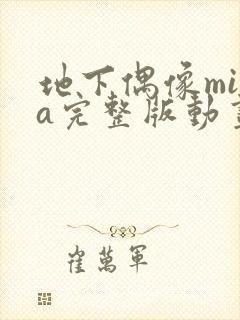 地下偶像mi
a完整版动
崔萬軍